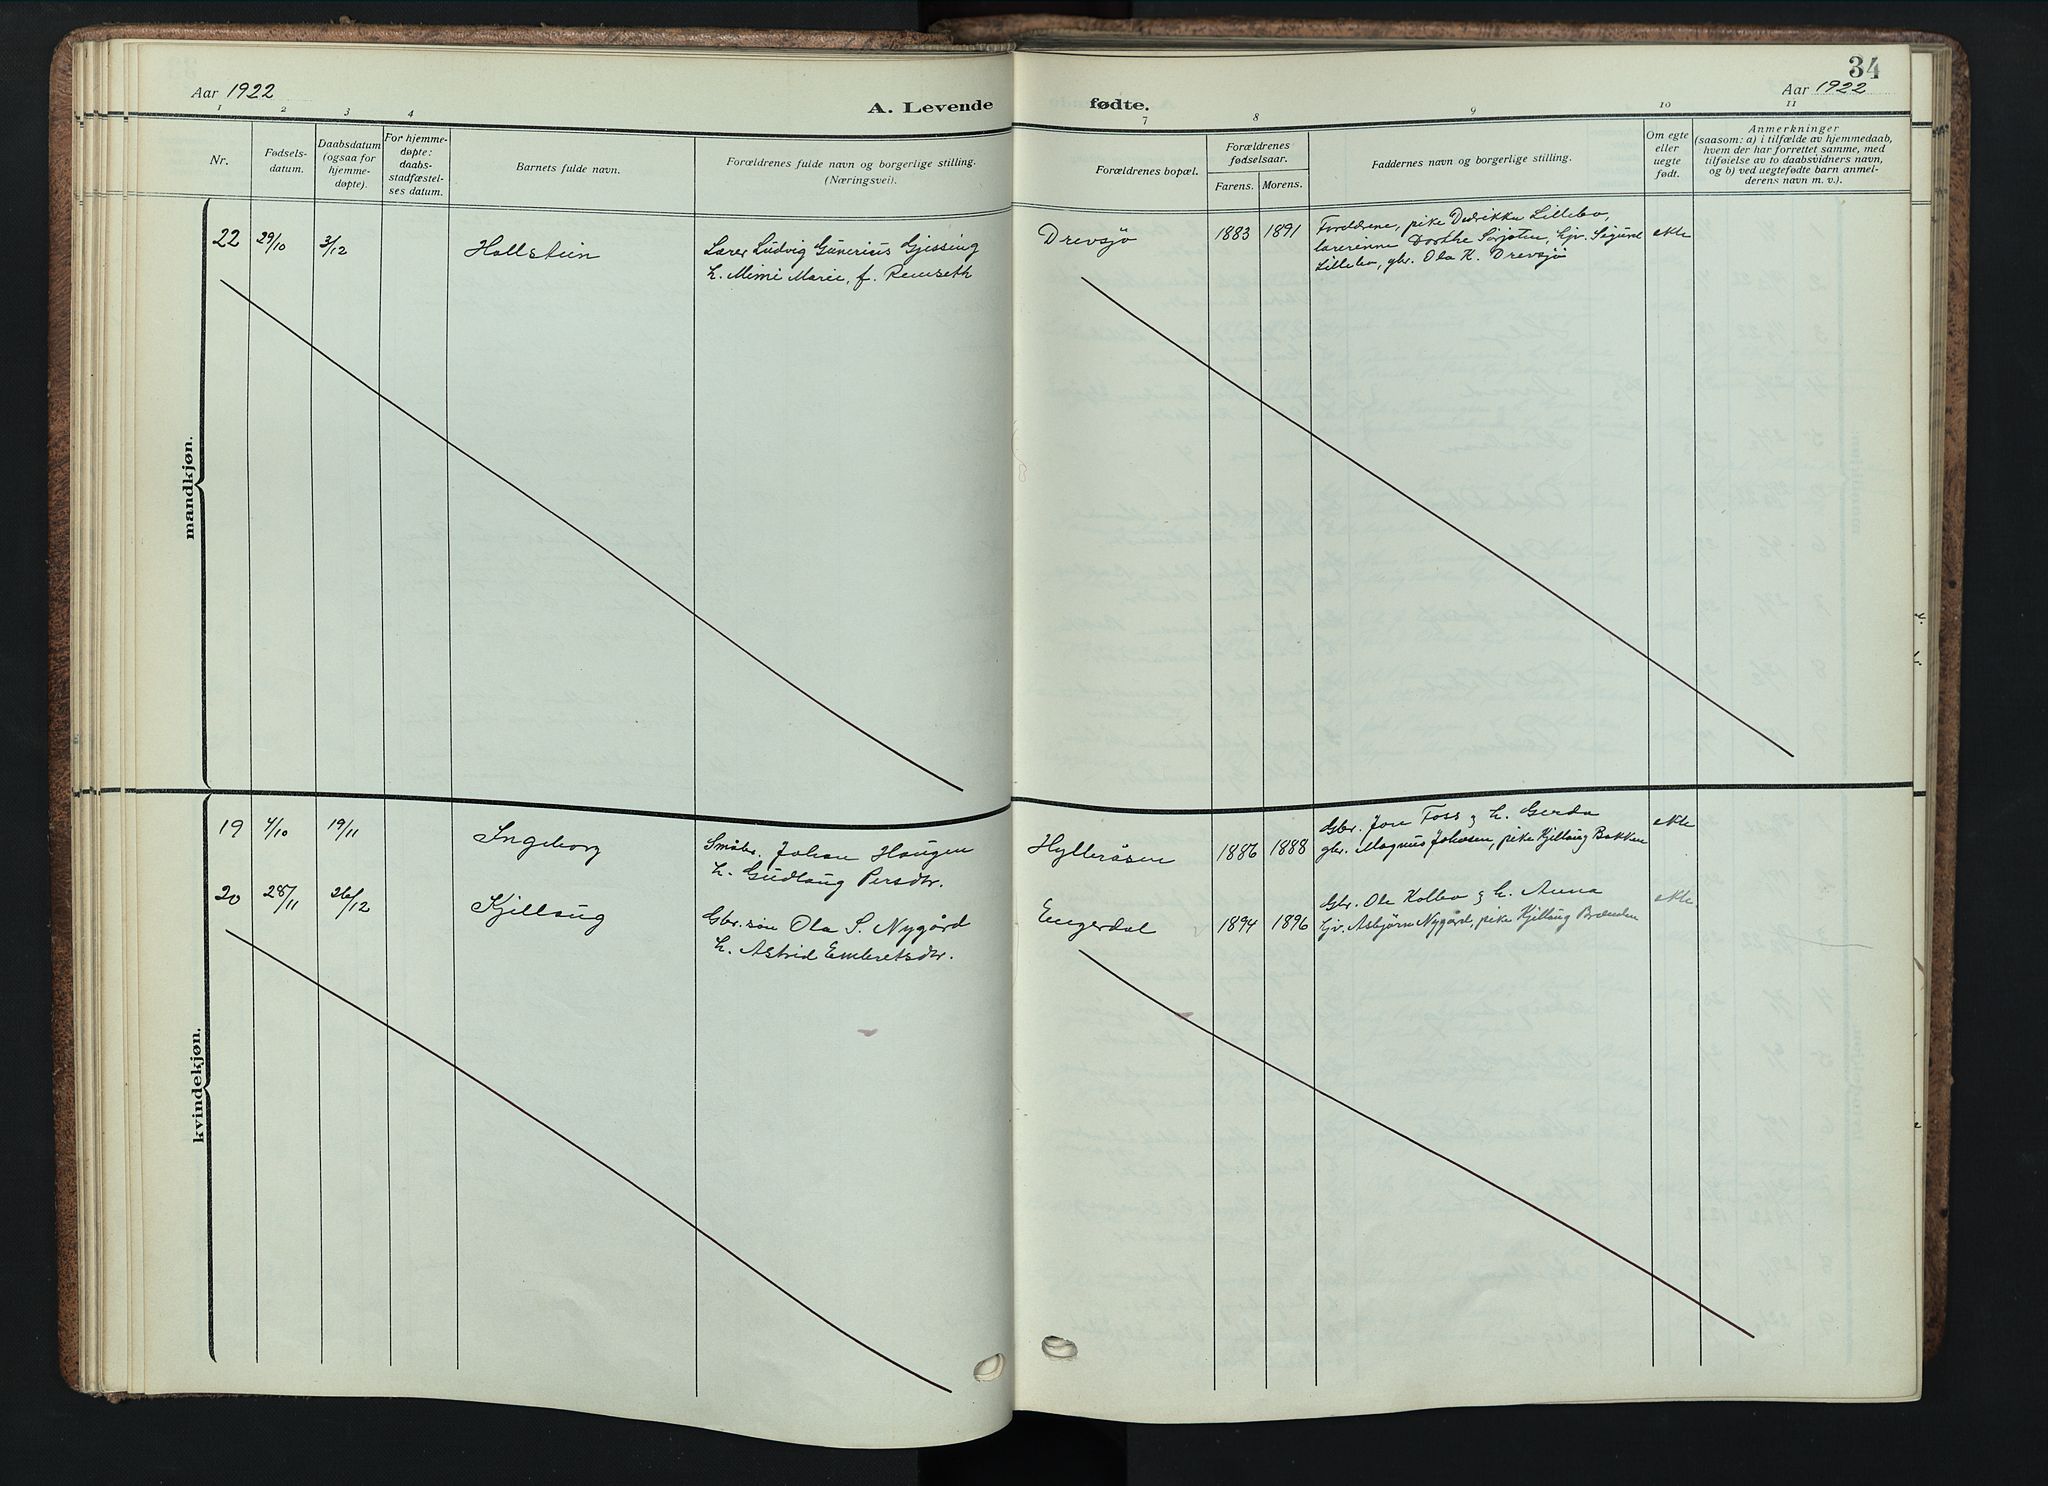 34
Aar 1922
A. Levende fødte.
Aar 1922
1 2 3 4 7 8 9 10 11
Nr.
Fødsels-
datum.
Daabsdatum
(ogsaa for
hjemme-
døpte).
For hjemme-
døpte:
daabs-
stadfæstel-
ses datum.
Barnets fulde navn.
Forældrenes fulde navn og borgerlige stilling.
(Næringsvei).
Forældrenes bopæl.
Forældrenes
fødselsaar.
Farens. Morens.
Faddernes navn og borgerlige stilling.
Om egte
eller
uegte
født.
Anmerkninger
(saasom: a) i tilfælde av hjemmedaab,
hvem der har forrettet samme, med
tilføielse av to daabsvidners navn,
og b) ved uegtefødte barn anmel-
derens navn m. v.).
mandkjøn.
22 29/10 3/12 Hallstein
Lærer Ludvig Gunerius Gjessing
h. Mimi Marie, f. Remseth
Drevsjø 1883 1891
Foreldrene, pike Dedrikke Lillebo,
lærerinne Dorthe Sørjoten, hjv. Sigurd
Lillebo, gbr. Ola K. Drevsjø
ekte
kvindekjøn.
19 4/10 19/11 Ingeborg
Småbr. Johan Haugen
h. Gudlaug Persdtr.
Hylleråsen 1886 1888
Gbr. Jon Foss & h. Gerda
gbr. Magnus Johnsen, pike Kjellaug Bakken
ekte
20 28/11 26/12 Kjellaug
Gbr.søn Ola S. Nygård
h. Astrid Embretsdtr.
Engerdal 1894 1896
Gbr. Ole Holbo & h. Anna
hjv. Asbjørn Nygård, pike Kjellaug Brænden
ekte